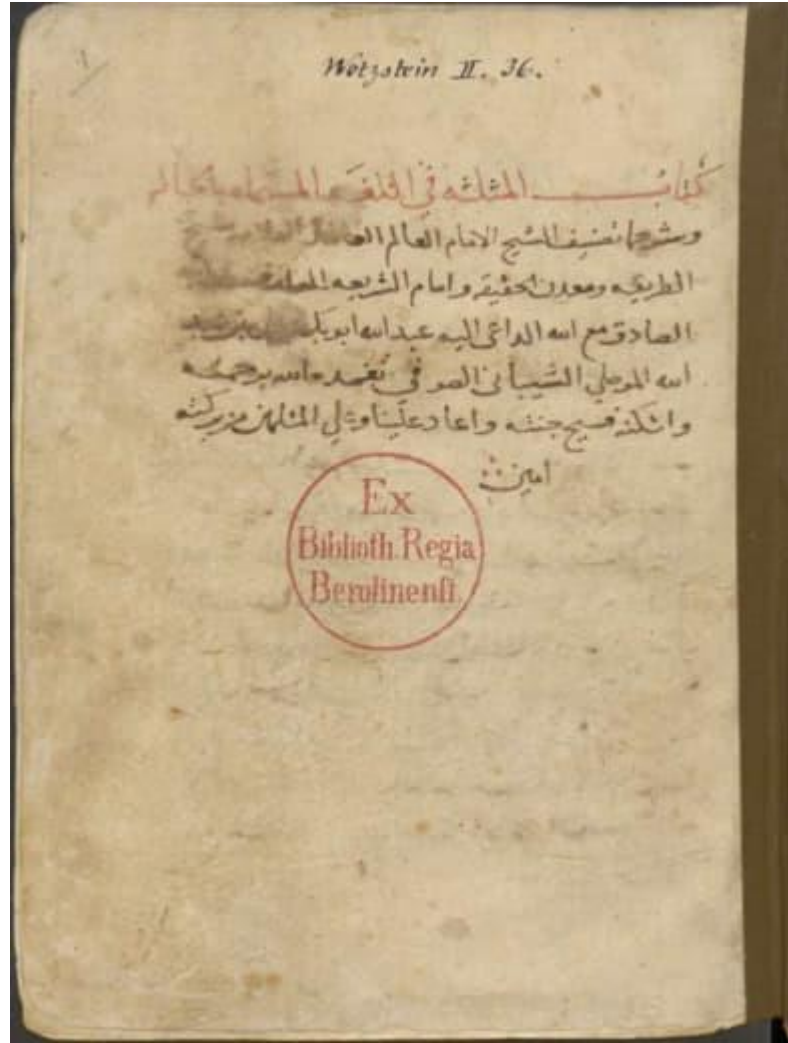 1
Wetzstein II. 36.
كتاب المثلثه في اللغه المسماه بالعالم
وشرحها تصنيف الشيخ الامام العالم
الطريقه ومعدن الحقيقه وامام الشريعه
الصادق مع الله الداعي اليه عبد الله ابو بكر بن
الله الموصلي الشيباني الصوفي تغمده الله برحمته
واسكنه فسيح جنته واعاد علينا وعلى المسلمين من بركته
امين
Ex
Biblioth. Regia
Berolinensi.